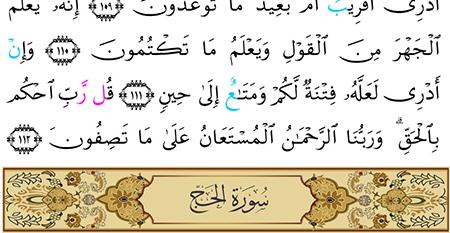 أَدْرِي أَقَرِيبٌ أَم بَعِيدٌ مَّا تُوعَدُونَ ﴿١٠٩﴾ إِنَّهُۥ يَعْلَمُ
الْجَهْرَ مِنَ الْقَوْلِ وَيَعْلَمُ مَا تَكْتُمُونَ ﴿١١٠﴾ وَإِنْ
أَدْرِي لَعَلَّهُۥ فِتْنَةٌ لَّكُمْ وَمَتَاعٌ إِلَىٰ حِينٍ ﴿١١١﴾ قُل رَّبِّ احْكُم
بِالْحَقِّ ۗ وَرَبُّنَا الرَّحْمَٰنُ الْمُسْتَعَانُ عَلَىٰ مَا تَصِفُونَ ﴿١١٢﴾
سُورَةُ الحَجّ